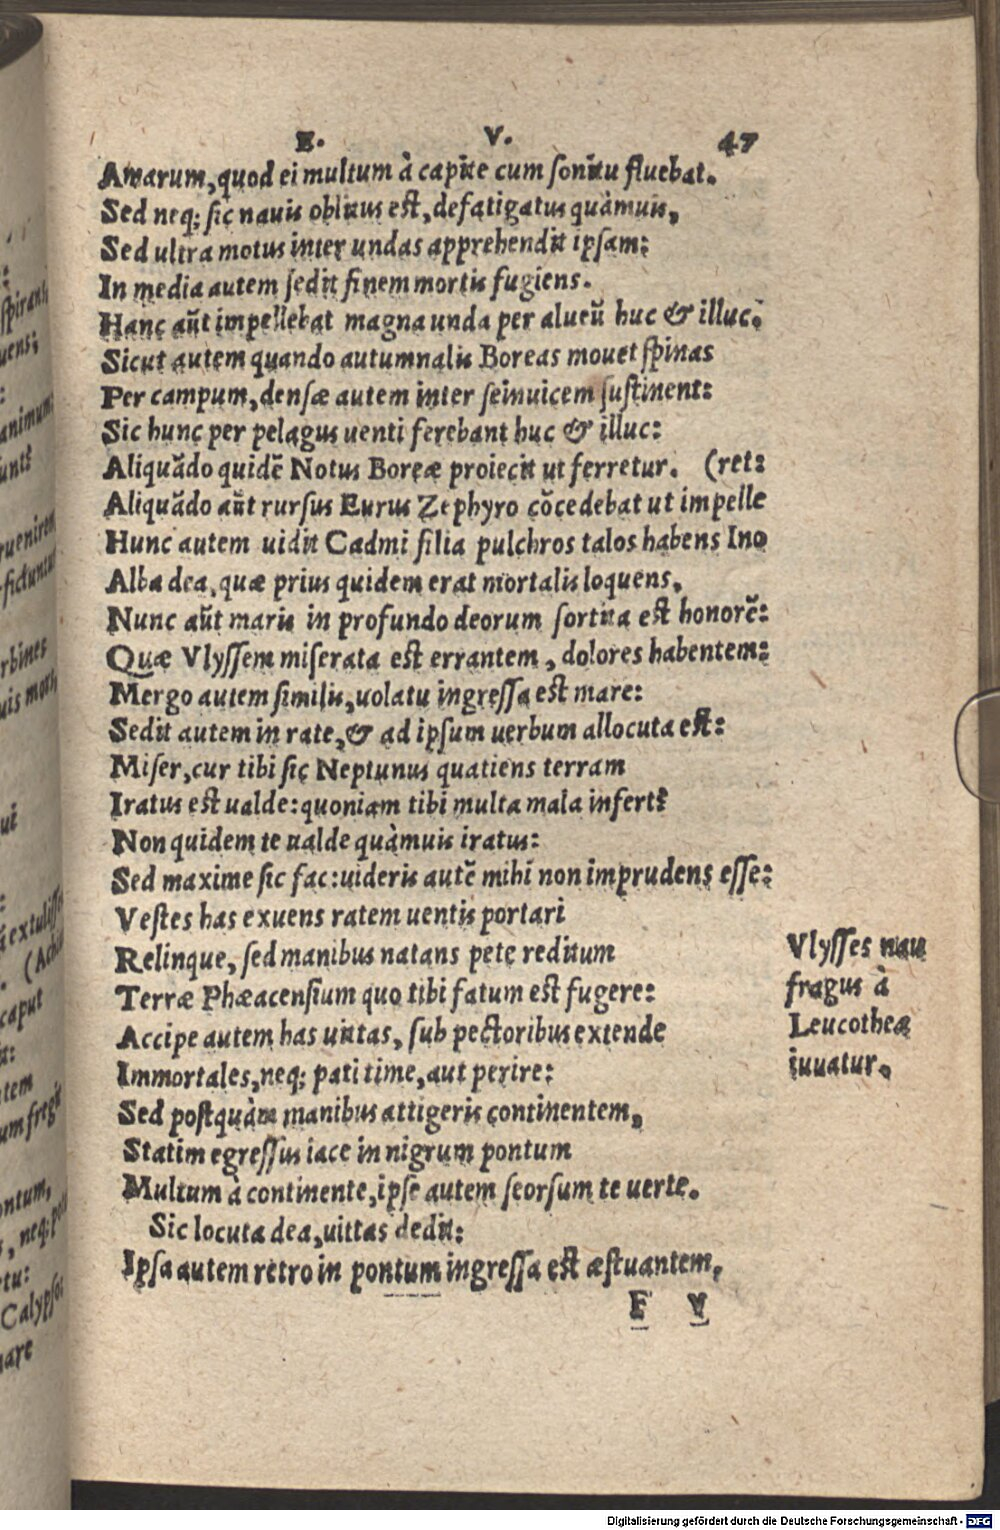 E. V. 47
Amarum, quod ei multum à capite cum sonitu fluebat.
Sed neq; sic nauis oblitus est, defatigatus quàmuis,
Sed ultra motus inter undas apprehendit ipsam:
In media autem sedit finem mortis fugiens.
Hanc aũt impellebat magna unda per alueũ huc & illuc.
Sicut autem quando autumnalis Boreas mouet spinas
Per campum, densæ autem inter seinuicem sustinent:
Sic hunc per pelagus uenti ferebant huc & illuc:
Aliquãdo quidẽ Notus Boreæ proiecit ut ferretur. (ret:
Aliquãdo aũt rursus Eurus Zephyro cõcedebat ut impelle
Hunc autem uidit Cadmi filia pulchros talos habens Ino
Alba dea, quæ prius quidem erat mortalis loquens,
Nunc aũt maris in profundo deorum sortita est honorẽ:
Quæ Vlyssem miserata est errantem, dolores habentem:
Mergo autem similis, uolatu ingressa est mare:
Sedit autem in rate, & ad ipsum uerbum allocuta est:
Miser, cur tibi sic Neptunus quatiens terram
Iratus est ualde: quoniam tibi multa mala infert?
Non quidem te ualde quàmuis iratus:
Sed maxime sic fac: uideris autẽ mihi non imprudens esse:
Vestes has exuens ratem uentis portari
Relinque, sed manibus natans pete reditum
Terræ Phæacensium quo tibi fatum est fugere:
Accipe autem has uittas, sub pectoribus extende
Immortales, neq; pati time, aut perire:
Sed postquàm manibus attigeris continentem,
Statim egressus iace in nigrum pontum
Multum à continente, ipse autem seorsum te uerte.
Sic locuta dea, uittas dedit:
Ipsa autem retro in pontum ingressa est æstuantem,
F V
Vlysses nau
fragus à
Leucothea
iuuatur.
:
spirant
uens;
:
animum:
unt?
ruenirem
rbines
uis
ui
:
extulisse
caput
t:
tem
um fregit
ontum,
, neq;
tu:
Calypso
mare
Digitalisierung gefördert durch die Deutsche Forschungsgemeinschaft - DFG